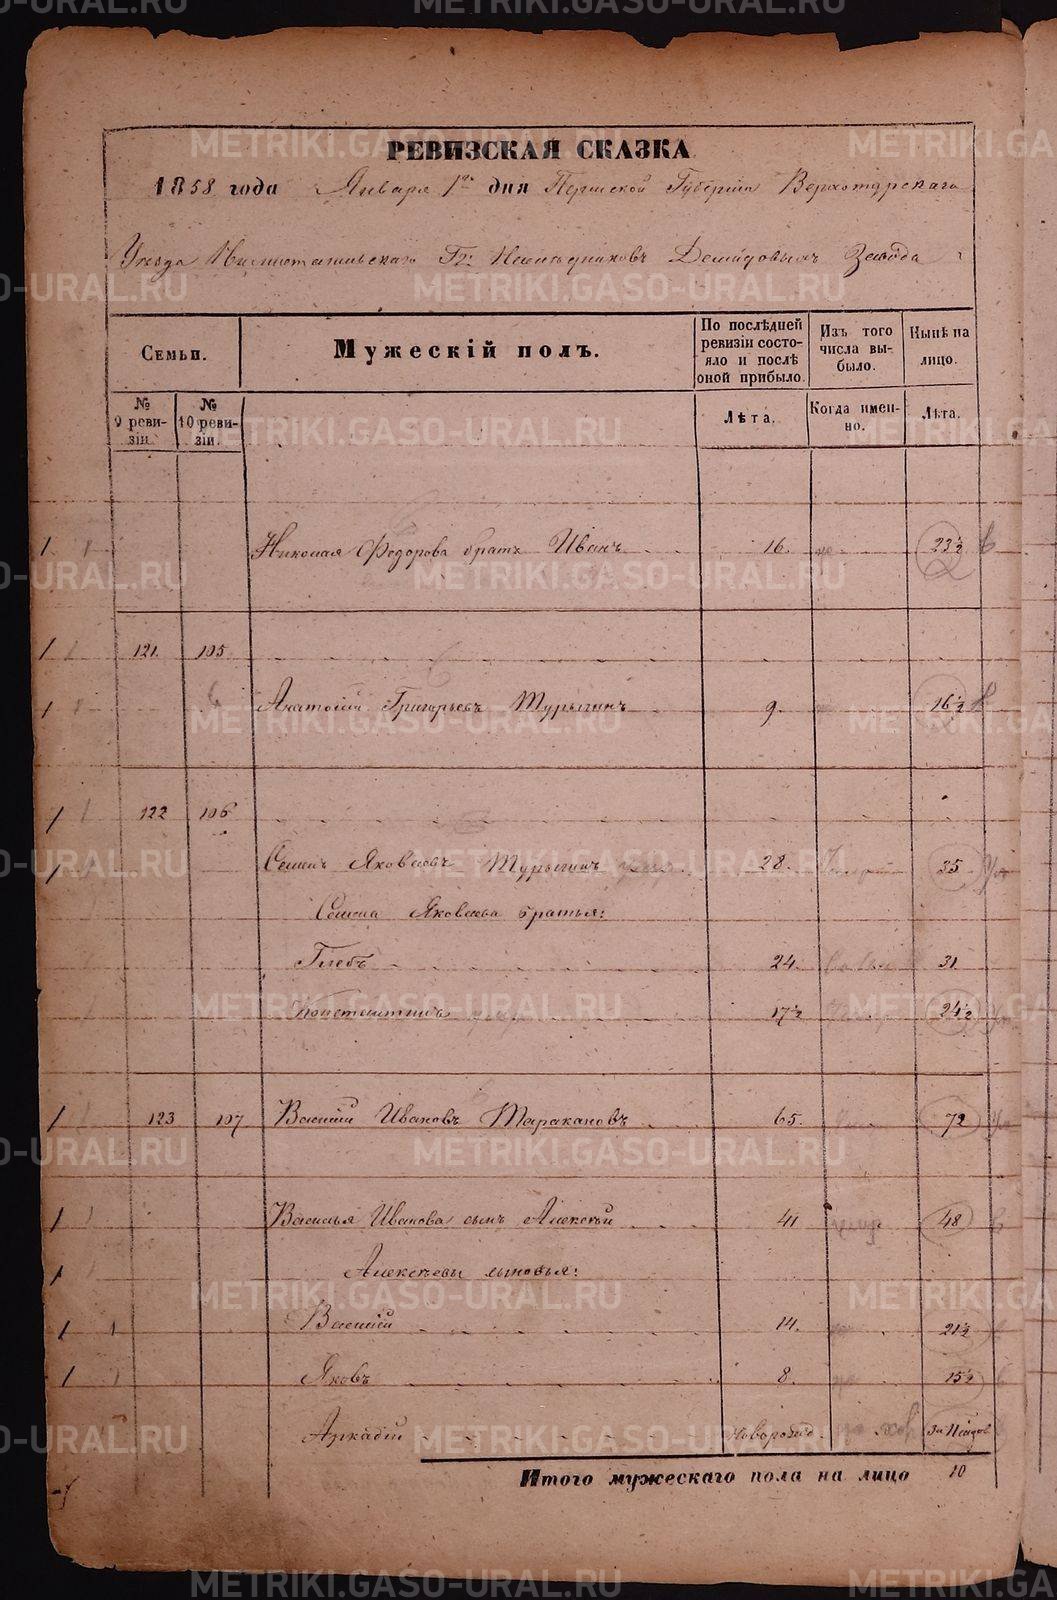 РЕВИЗСКАЯ СКАЗКА
1858 года Января 1го дня Пермской Губернии Верхотурскаго
Уезда Нижнетагильскаго Гг: Наследниковъ Демидовыхъ Завода
Семьи.
Мужескій полъ.
По послѣдней ревизіи состояло и послѣ оной прибыло.
Изъ того числа выбыло.
Нынѣ на лицо.
№ 9 ревизіи.
№ 10 ревизіи.
Лѣта.
Когда именно.
Лѣта.
Николая Федорова братъ Иванъ 16. 23½
121. 105
Анатолій Григорьевъ Турыгинъ 9. 16½
122 106
Семенъ Яковлевъ Турыгинъ 28. 35
Семена Яковлева братья:
Глебъ 24. 31
Константинъ 17½ 24½
123 107 Василій Ивановъ Таракановъ 65. 72
Василья Иванова сынъ Алексѣй 41 48
Алексѣевы сыновья:
Василій 14. 21½
Яковъ 8. 15½
Аркадій Новорожд.
Итого мужескаго пола на лицо 10
METRIKI.GASO-URAL.RU